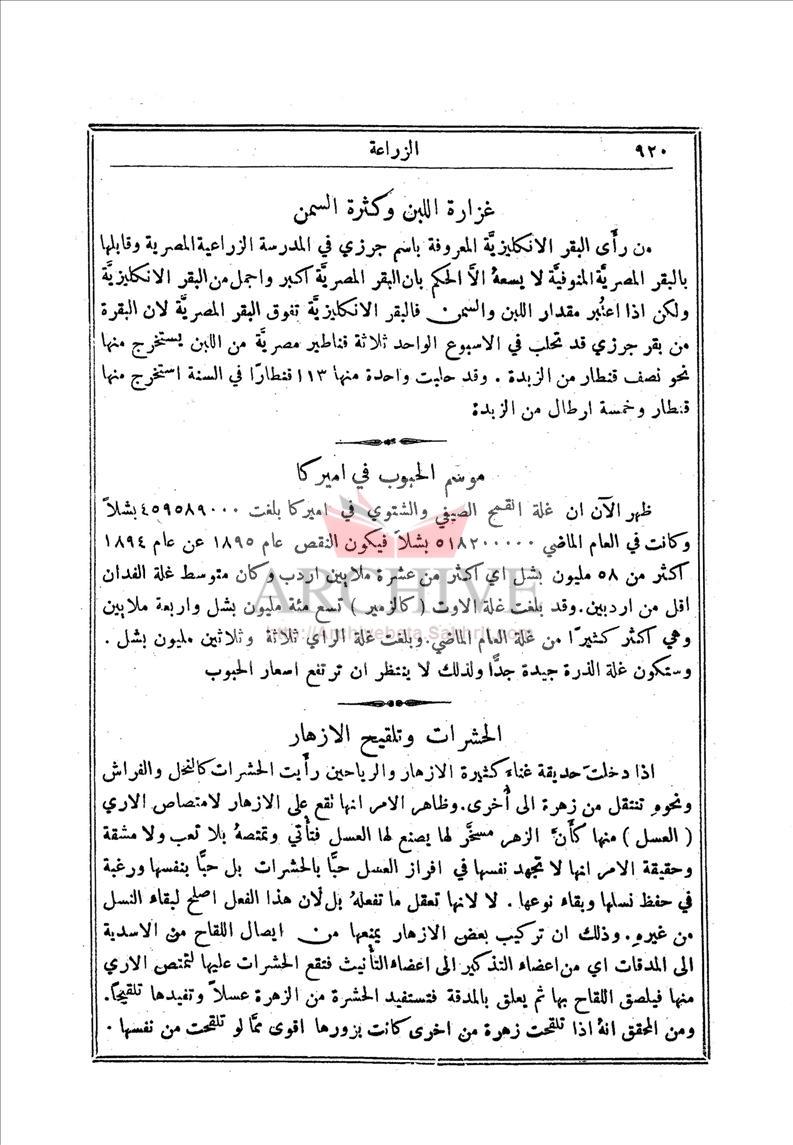 ٩٢٠
الزراعة
غزارة اللبن وكثرة السمن
من رأَى البقر الانكليزيَّة المعروفة باسم جرزي في المدرسة الزراعية المصرية وقابلها
بالبقر المصريَّة المنوفيَّة لا يسعهُ الاَّ الحكم بان البقر المصريَّة اكبر واجمل من البقر الانكليزيَّة
ولكن اذا اعتُبر مقدار اللبن والسمن فالبقر الانكليزيَّة تفوق البقر المصريَّة لان البقرة
من بقر جرزي قد تحلب في الاسبوع الواحد ثلاثة قناطير مصريَّة من اللبن يستخرج منها
نحو نصف قنطار من الزبدة . وقد حلبت واحدة منها ١١٣ قنطارًا في السنة استخرج منها
قنطار وخمسة ارطال من الزبدة
موسم الحبوب في اميركا
ظهر الآن ان غلة القمح الصيفي والشتوي في اميركا بلغت ٤٥٩٥٨٩٠٠٠ بشلاً
وكانت في العام الماضي ٥١٨٢٠٠٠٠٠ بشلاً فيكون النقص عام ١٨٩٥ عن عام ١٨٩٤
اكثر من ٥٨ مليون بشل اي اكثر من عشرة ملايين اردب وكان متوسط غلة الفدان
اقل من اردبين. وقد بلغت غلة الاوت ( كالزمير ) تسع مئة مليون بشل واربعة ملايين
وهي اكثر كثيرًا من غلة العام الماضي. وبلغت غلة الراي ثلاثة وثلاثين مليون بشل .
وستكون غلة الذرة جيدة جدًّا ولذلك لا ينتظر ان ترتفع اسعار الحبوب
ARCHIVE
http://Archivebeta.Sakhrit.com
الحشرات وتلقيح الازهار
اذا دخلتَ حديقة غناء كثيرة الازهار والرياحين رأَيت الحشرات كالنحل والفراش
ونحوه تنتقل من زهرة الى أُخرى. وظاهر الامر انها تقع على الازهار لامتصاص الاري
( العسل ) منها كأَنَّ الزهر مسخَّر لها يصنع لها العسل فتأتي وتمتصهُ بلا تعب ولا مشقة
وحقيقة الامر انها لا تجهد نفسها في افراز العسل حبًّا بالحشرات بل حبًّا بنفسها ورغبة
في حفظ نسلها وبقاء نوعها . لا لانها تعقل ما تفعلهُ بل لان هذا الفعل اصلح لبقاء النسل
من غيره. وذلك ان تركيب بعض الازهار يمنعها من ايصال اللقاح من الاسدية
الى المدقات اي من اعضاء التذكير الى اعضاء التأنيث فتقع الحشرات عليها لتمتص الاري
منها فيلصق اللقاح بها ثم يعلق بالمدقة فتستفيد الحشرة من الزهرة عسلاً وتفيدها تلقيحًا.
ومن المحقق انهُ اذا تلقحت زهرة من اخرى كانت بزورها اقوى ممَّا لو تلقحت من نفسها .